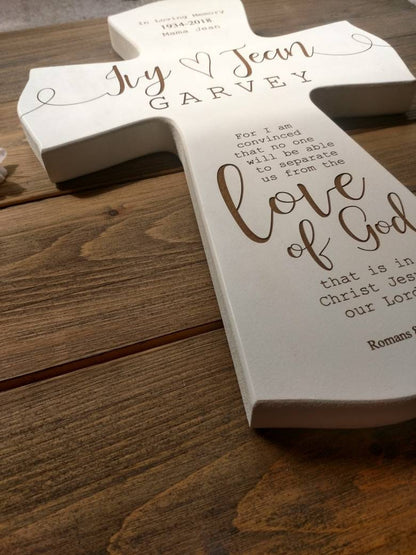 In Loving Memory
1934-2018
Mama Jean
Ivy Jean
GARVEY
For I am
convinced
that no one
will be able
to separate
us from the
love
of God
that is in
Christ Jesu
our Lord
Romans